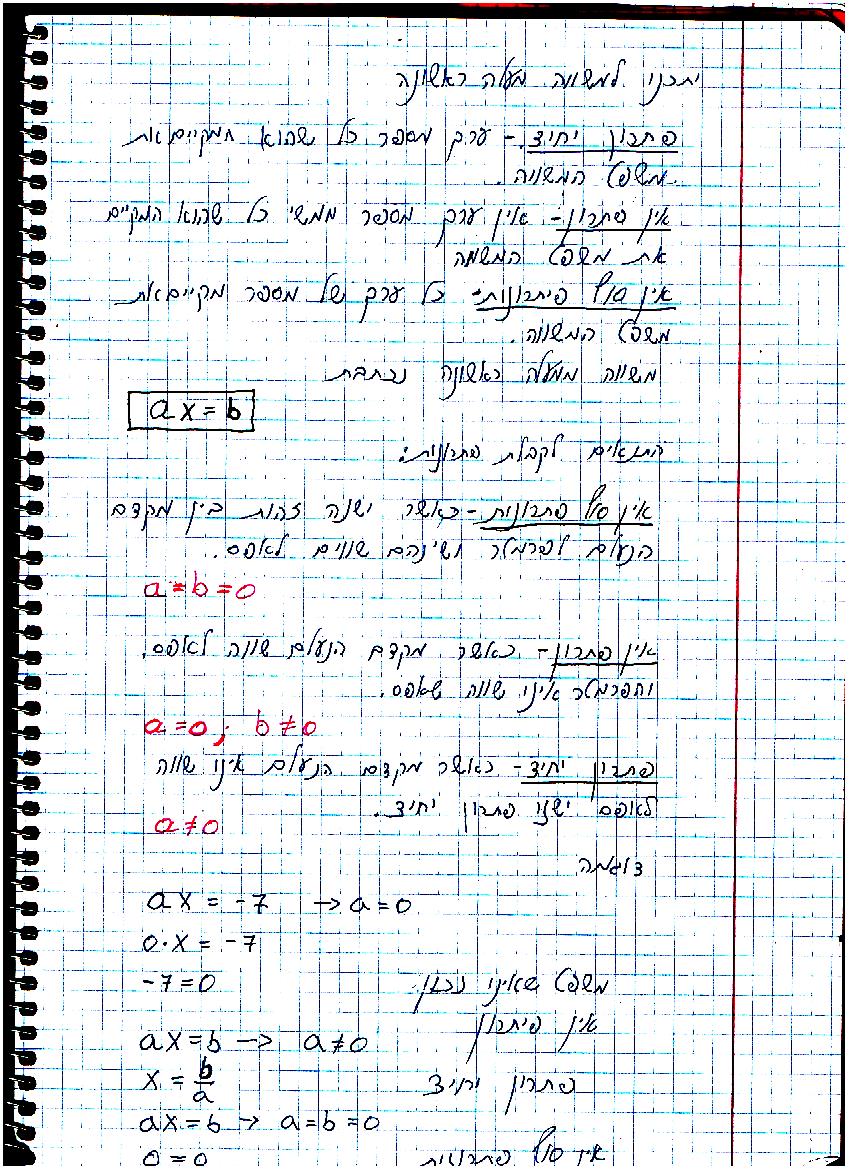 יתכנו למשווה מעלה ראשונה
פתרון יחיד - ערך מספר כל שהוא המקיים את
משפט המשווה.
אין פתרון - אין ערך מספר ממשי כל שהוא המקיים
את משפט המשווה
אין סוף פיתרונות - כל ערך של מספר מקיים את
משפט המשווה.
משווה ממעלה ראשונה נכתבת
ax = b
התנאים לקבלת פתרונות:
אין סוף פתרונות - כאשר ישנה זהות בין מקדם
הנעלם לפרמטר ושניהם שווים לאפס.
a = b = 0
אין פתרון - כאשר מקדם הנעלם שווה לאפס,
והפרמטר אינו שווה לאפס.
a = 0 ; b ≠ 0
פתרון יחיד - כאשר מקדם הנעלם אינו שווה
לאפס ישנו פתרון יחיד.
a ≠ 0
דוגמה
ax = -7 → a = 0
0·x = -7
-7 = 0 משפט שאינו נכון.
אין פיתרון
ax = b → a ≠ 0
x = b/a פתרון יחיד
ax = b → a = b = 0
0 = 0 אין סוף פתרונות